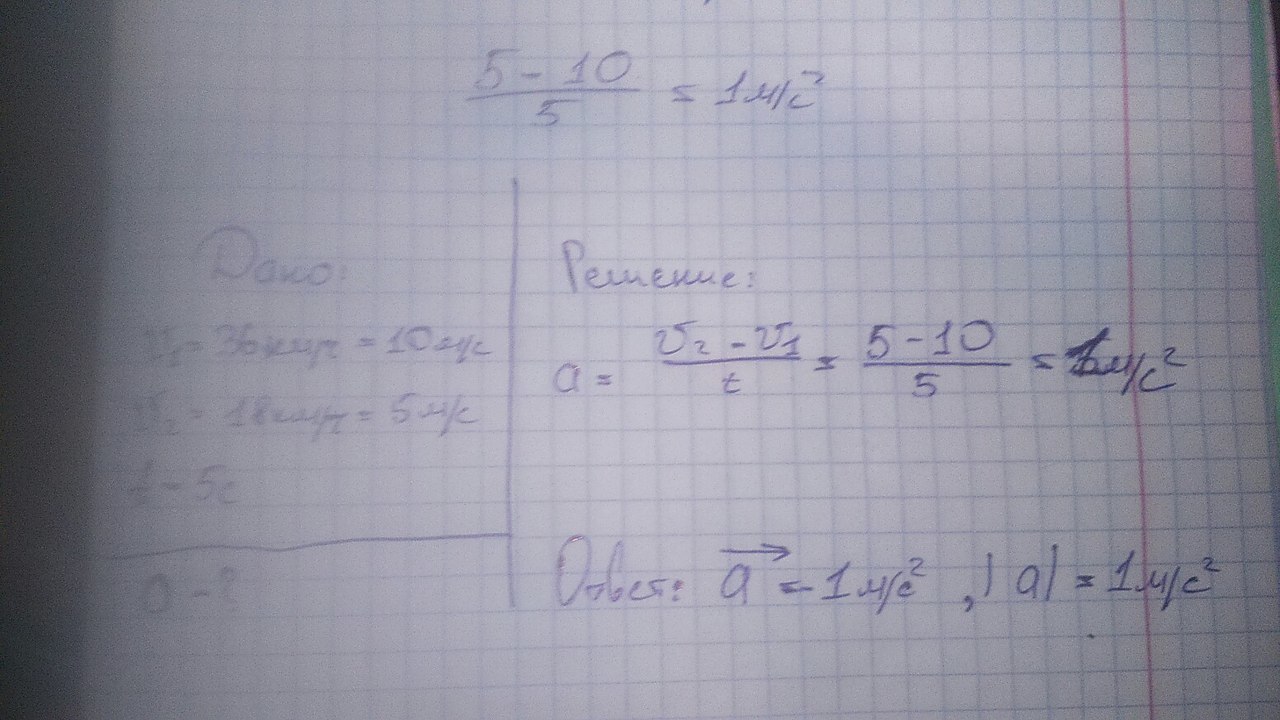 5 - 10 / 5 = 1 м/с²
Дано:
v₁ = 36 км/ч = 10 м/с
v₂ = 18 км/ч = 5 м/с
t - 5с
a - ?
Решение:
a = v₂ - v₁ / t = 5 - 10 / 5 = 1 м/с²
Ответ: a⃗ = -1 м/с², |a| = 1 м/с²